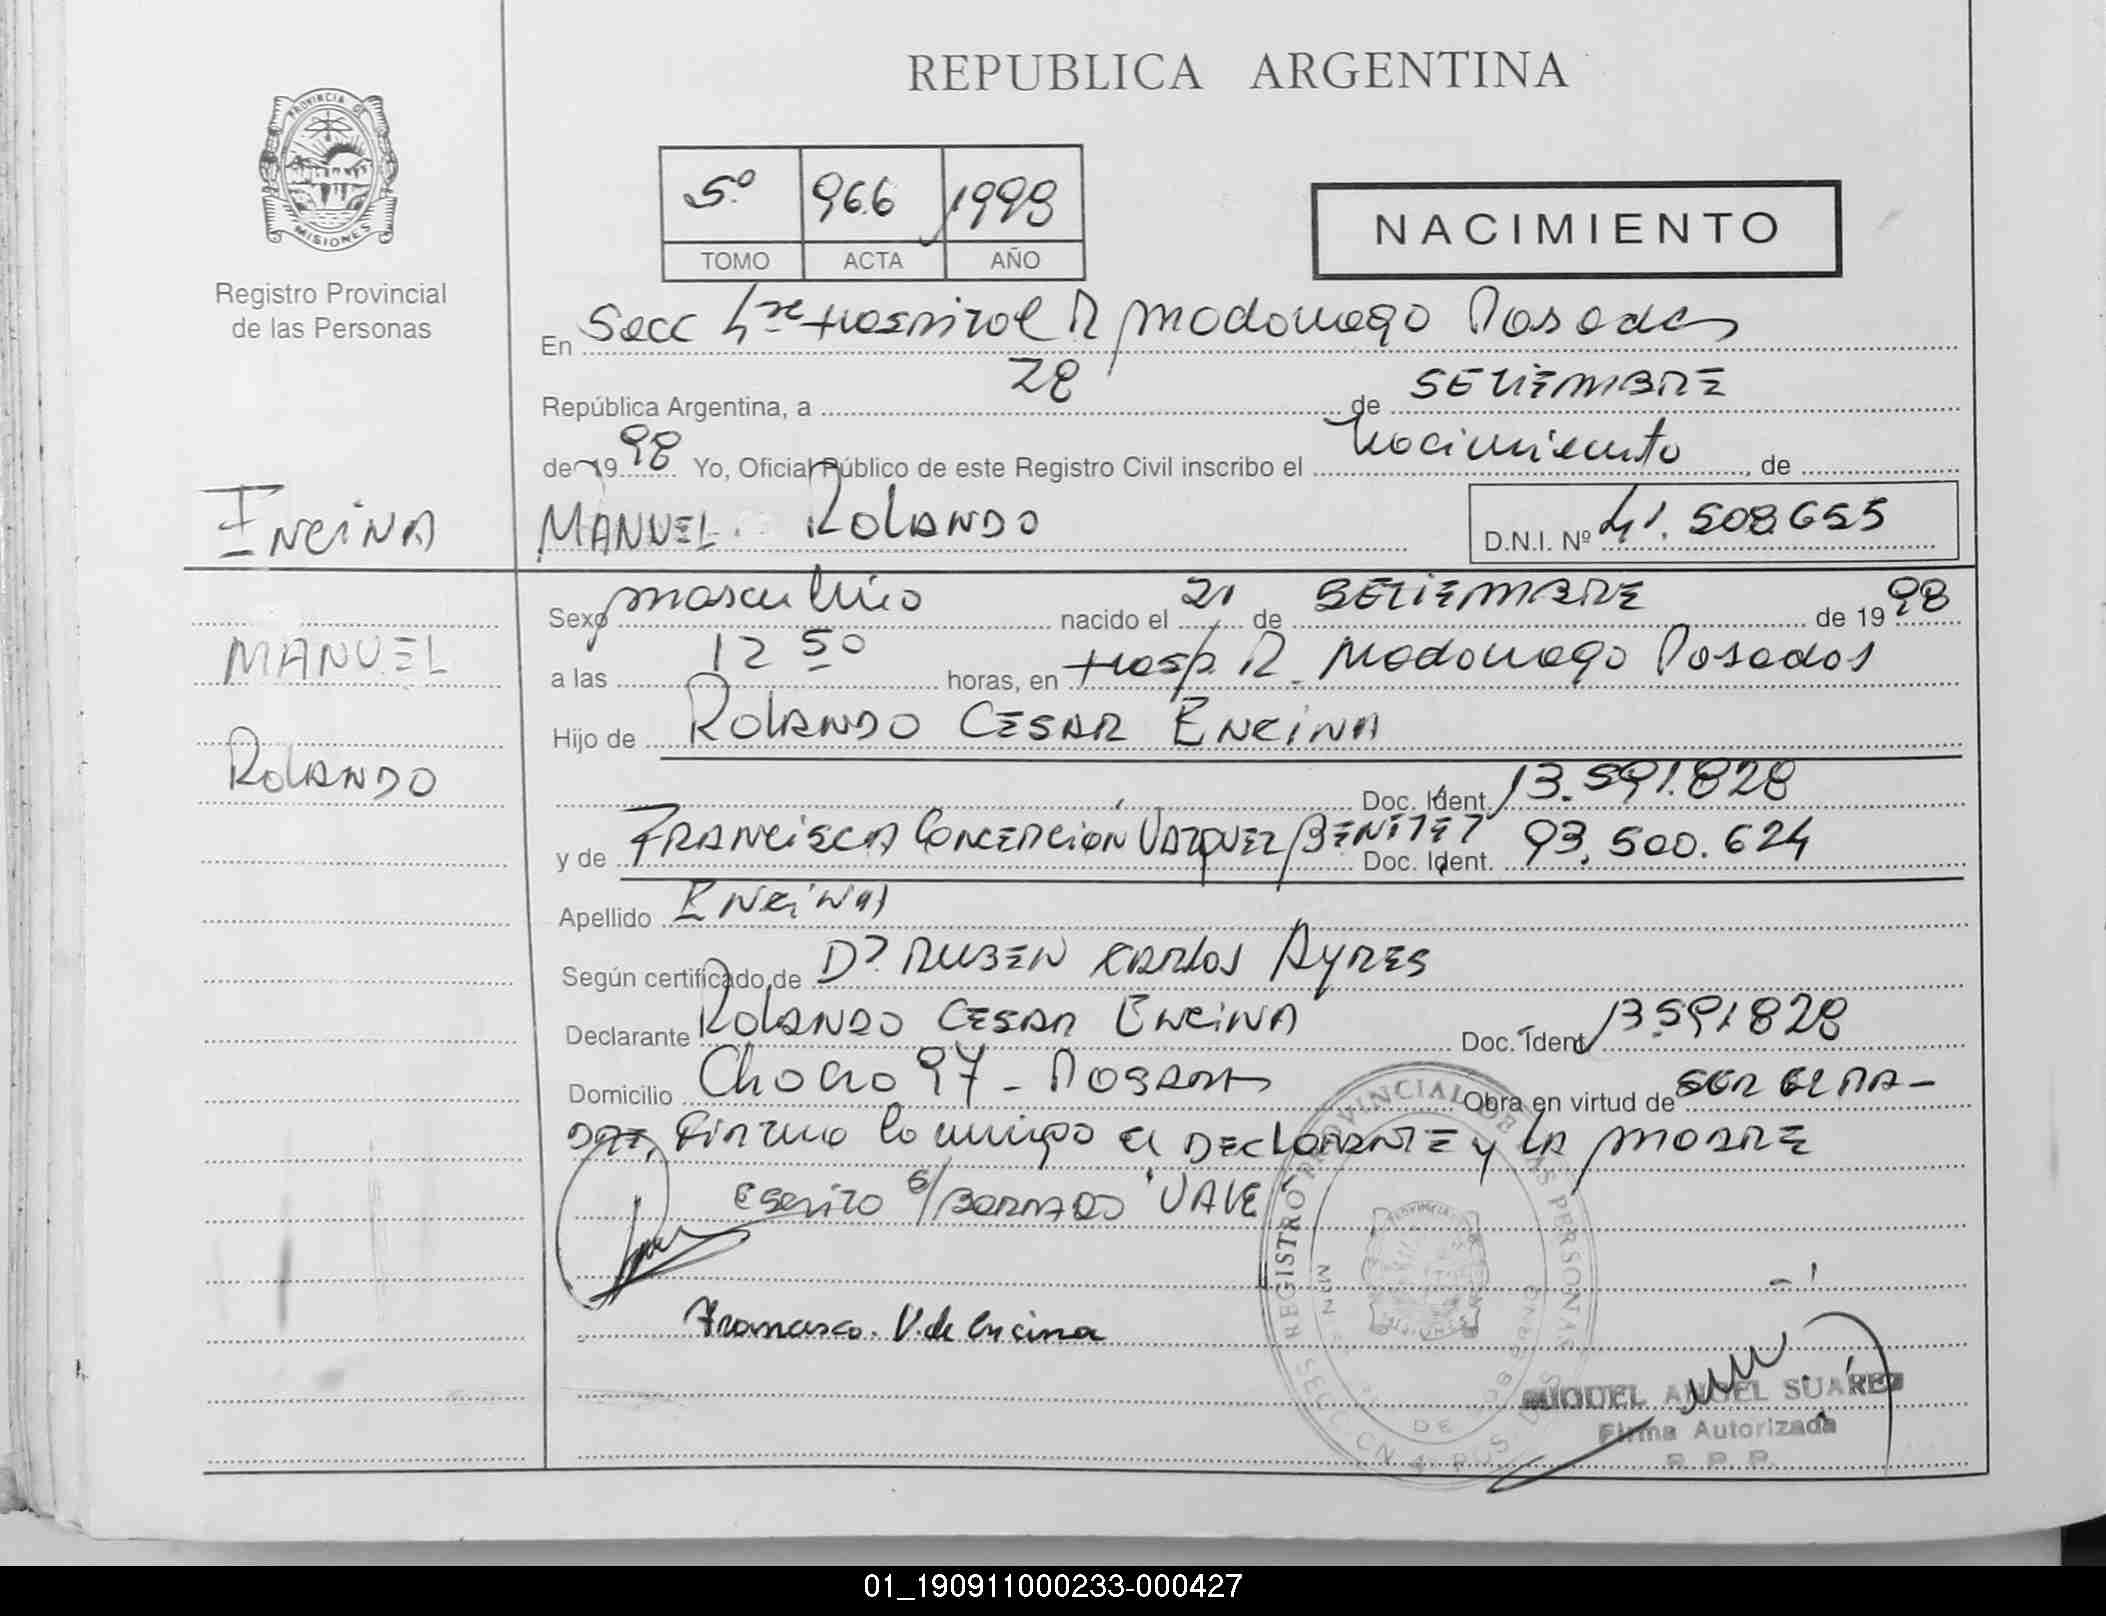 REPUBLICA ARGENTINA
PROVINCIA DE
MISIONES
Registro Provincial
de las Personas
5º 966 1998
TOMO ACTA AÑO
NACIMIENTO
En Secc 4ta Hospital R Madariaga Posadas
República Argentina, a 28 de SETIEMBRE
de 19 98 Yo, Oficial Público de este Registro Civil inscribo el Nacimiento, de
ENCINA MANUEL ROLANDO D.N.I. Nº 41.508655
Sexo masculino nacido el 21 de SETIEMBRE de 19 98
MANUEL a las 12 50 horas, en Hosp. R. Madariaga Posadas
Hijo de ROLANDO CESAR ENCINA
ROLANDO Doc. Ident. 13.591.828
y de FRANCISCA CONCEPCIÓN VAZQUEZ BENITEZ Doc. Ident. 93.500.624
Apellido ENCINA
Según certificado de Dr. RUBEN CARLOS AYRES
Declarante ROLANDO CESAR ENCINA Doc. Ident. 13591828
Domicilio 97 - POSADAS Obra en virtud de SER EL PA-
DRE, Firman conmigo el DECLARANTE y LA MADRE
ESCRITO S/BORRADO "VALE"
Francisca. V. de Encina
REGISTRO PROVINCIAL DE LAS PERSONAS
MIGUEL ANGEL SUÁREZ
Firma Autorizada
R. P. P.
01_190911000233-000427